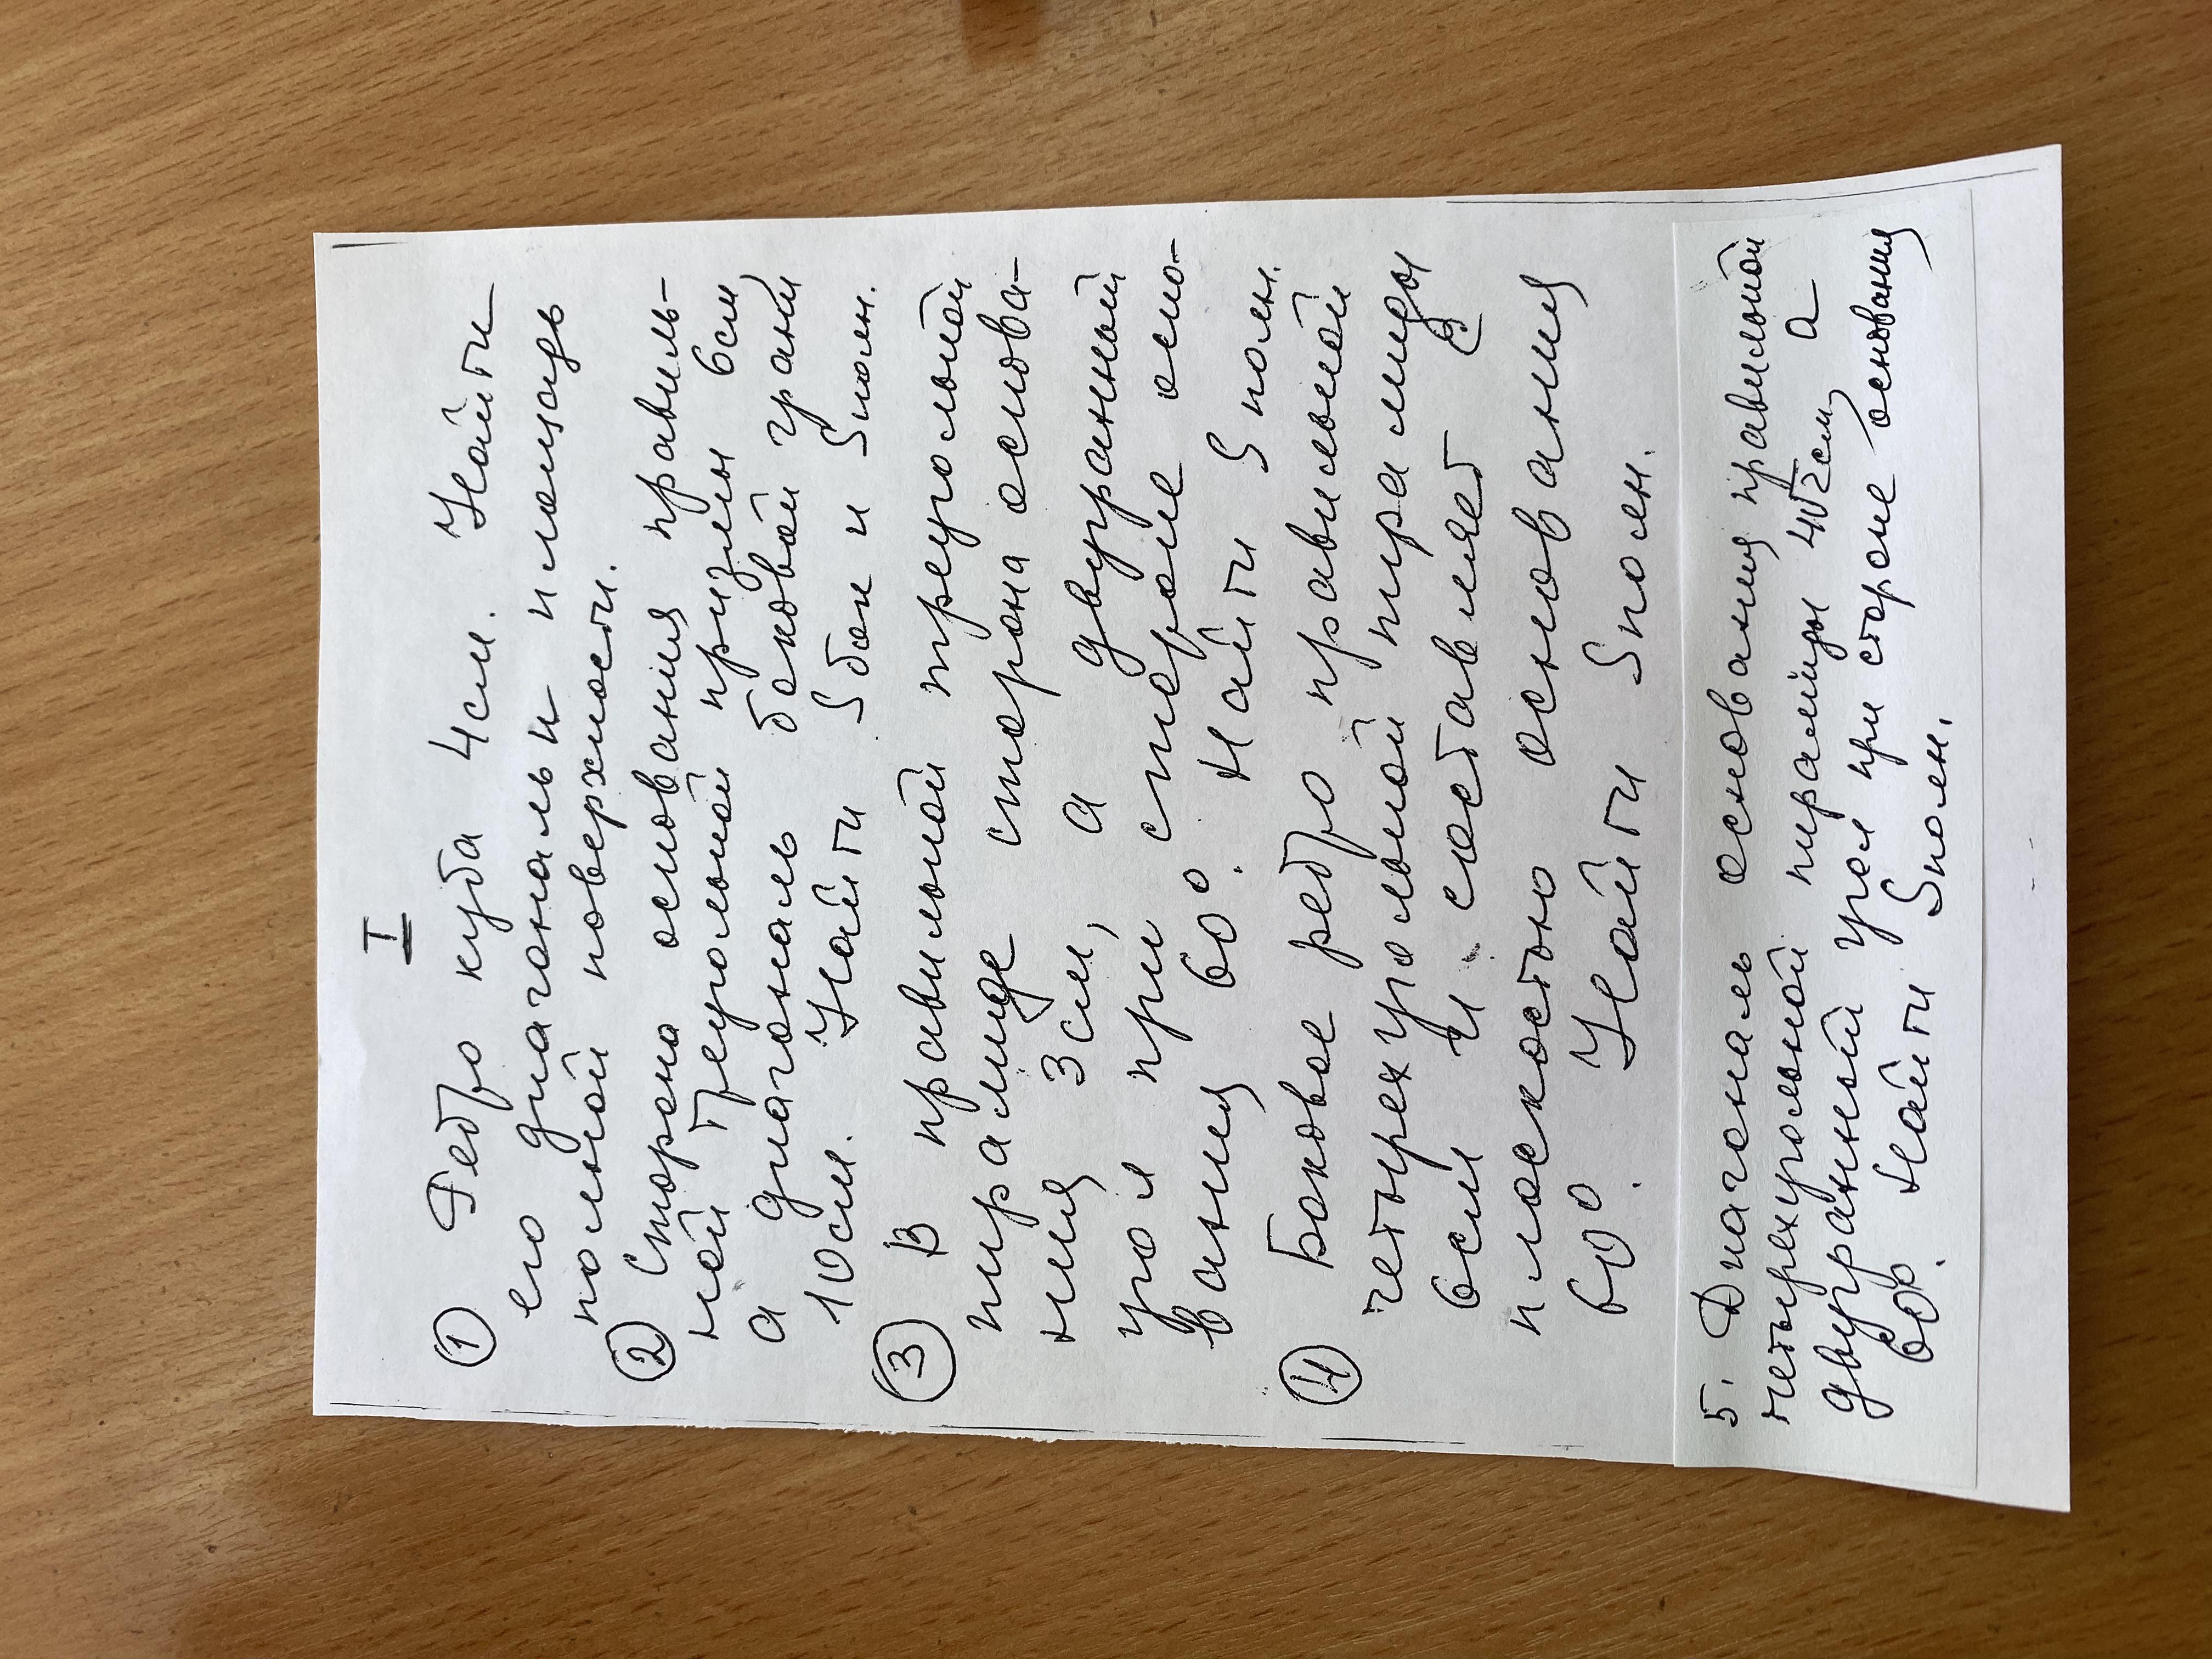 I
① Ребро куба 4см. Найти
его диагональ и площадь
полной поверхности.
② Сторона основания правиль-
ной треугольной призмы 6см,
а диагональ боковой грани
10см. Найти Sбок и Sполн.
③ В правильной треугольной
пирамиде сторона основа-
ния 3см, а двугранный
угол при стороне осно-
вания 60°. Найти Sполн.
④ Боковое ребро правильной
четырехугольной пирамиды
6см и составляет с
плоскостью основания
60°. Найти Sполн.
5. Диагональ основания правильной
четырехугольной пирамиды 4√2см, а
двугранный угол при стороне основания
60°. Найти Sполн.